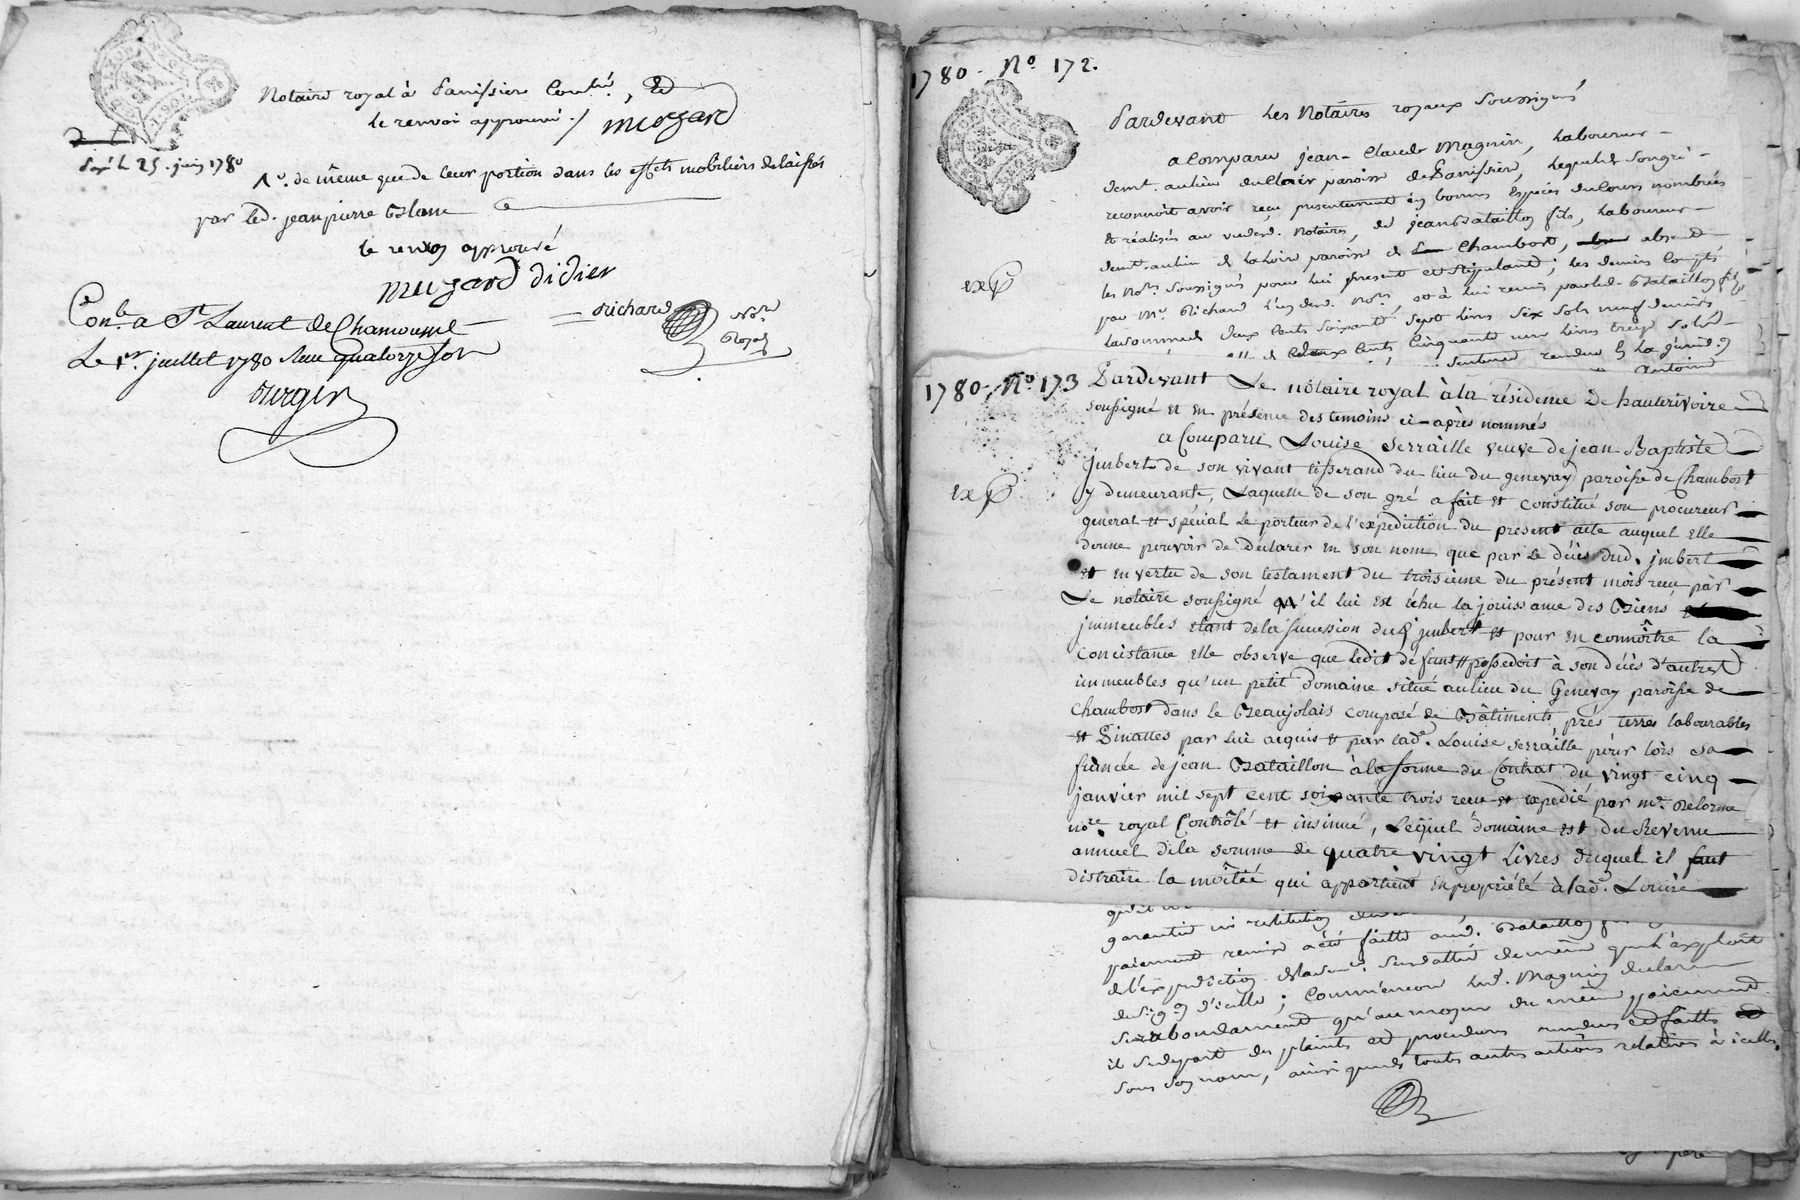 Notaire royal à Panissiere Con.tré, Ed
le renvoi approuvé ./ muzard
Exp. le 25. juin 1780
1°. de même que de leur portion dans les effets mobiliers delaissés
par led. jean pierre Blanc
le renvoy approuvé
muzard didier
Richard Nore Royal
Con.lé a St Laurent de Chamousset
Le 1er. juillet 1780 Reçu quatorze sols
1780. No. 172.
Pardevant Les Notaires royaux Soussignés
a Comparu jean-Claude Magnin, Laboureur
demt. au lieu du Clair paroisse de Panissiere, Lequel de son gré
reconnoit avoir reçu presentement en bonnes Especes du Cours nombrées
et réalisés au vu desd. Notaires, de jean Bataillon fils, Laboureur
demt. au lieu de la loire paroisse de Chambost, absent
les Nores. Soussignés pour lui present et stipulant; les deniers Comptés
par Me. Richard L'un desd. Nores. et à lui remis par led. Bataillon fils
La somme de deux Cents Soixante Sept Livres Six Sols neuf deniers
de deux Cents Cinquante une Livres treize sols
Sentence rendue
Antoine
exp
1780. No. 173
Pardevant Le notaire royal à la résidence De hauterivoire
soussigné et en présence des temoins ci-après nommés
a Comparu Louise Serraille veuve de jean Baptiste
jmbert de son vivant tisserand du lieu du genevay paroisse de Chambost
y demeurante, Laquelle de son gré a fait et constitué son procureur
general et spécial Le porteur de l'expedition du present acte auquel Elle
donne pouvoir de Déclarer en son nom que par le décès dud. jmbert
et en vertu de son testament du troisieme du présent mois reçu par
Le notaire soussigné qu'il lui est échu la jouissance des Biens
jmmeubles etant de la succession dud jmbert et pour en connoître la
concistance elle observe que ledit defunt possedoit à son décès d'autres
immeubles qu'un petit Domaine situé au lieu du Genevay paroisse de
Chambost dans le Beaujolais composé de Bâtiments, prés terres labourables
et Pinattes par lui acquis et par lade. Louise serraille pour lors sa
fiancée de jean Bataillon à la forme du Contrat du vingt-cinq
janvier mil sept cent soixante trois reçu et expedié par me. Delorme
nore. royal Contrôlé et insinué, Lequel domaine est du Revenu
annuel de la somme de quatre vingt Livres duquel il faut
distraire la moitiée qui appartient en propriété à lade. Louise
exp
garantie ni restitution
paiement remise a été faitte aud. Bataillon
de l'expedition de lad. Sentence de même que l'exploit
de sig.on d'icelle; Comm'encore led. Magnin declare
surabondament qu'au moyen du même paiement
il se depart des plaintes et procedures rendues et faittes
sous son nom, ainsi que de toutes autres actions relatives à icelles.